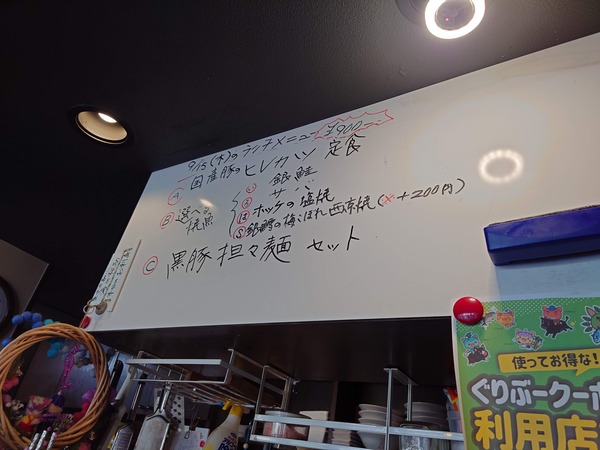 9/15(木)のランチメニュー ¥900ー
Ⓐ 国産豚のヒレカツ 定食
Ⓑ 選べる焼魚
銀鮭
サバ
ホッケの塩焼
銀鱈の梅こぼれ西京焼(※+200円)
Ⓒ 黒豚担々麺 セット
使ってお得な!
ぐりぶークーポ
利用店